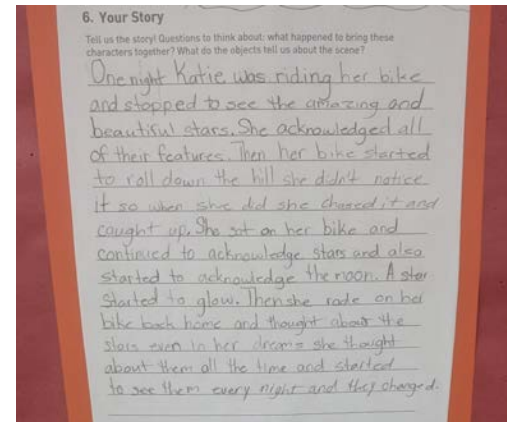 6. Your Story
Tell us the story! Questions to think about: what happened to bring these
characters together? What do the objects tell us about the scene?
One night Katie was riding her bike
and stopped to see the amazing and
beautiful stars. She acknowledged all
of their features. Then her bike started
to roll down the hill she didn't notice
it so when she did she chased it and
caught up. She sat on her bike and
continued to acknowledge stars and also
started to acknowledge the moon. A star
started to glow. Then she rode on her
bike back home and thought about the
stars even in her dreams she thought
about them all the time and started
to see them every night and they changed.